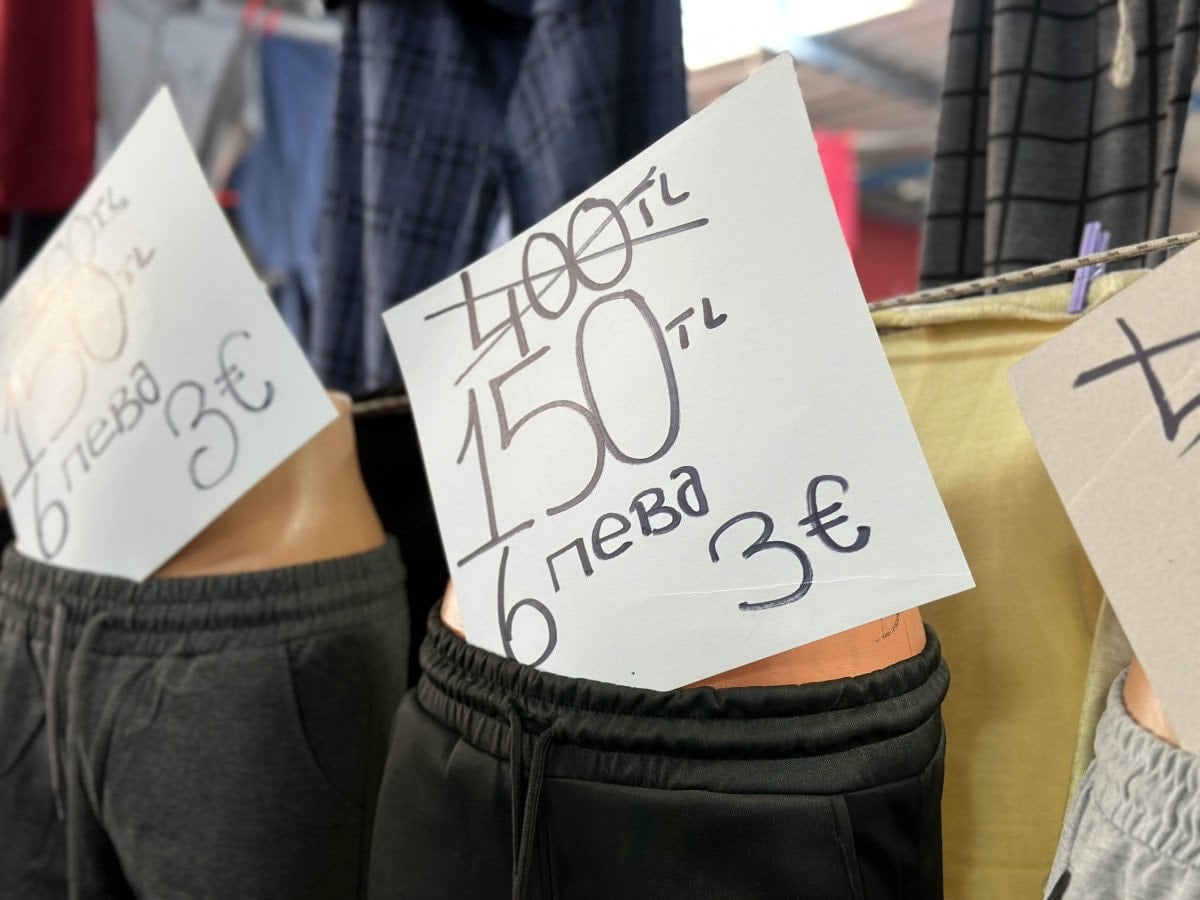 00TL
150TL
6 лева 3€
400TL
150TL
6 лева 3€